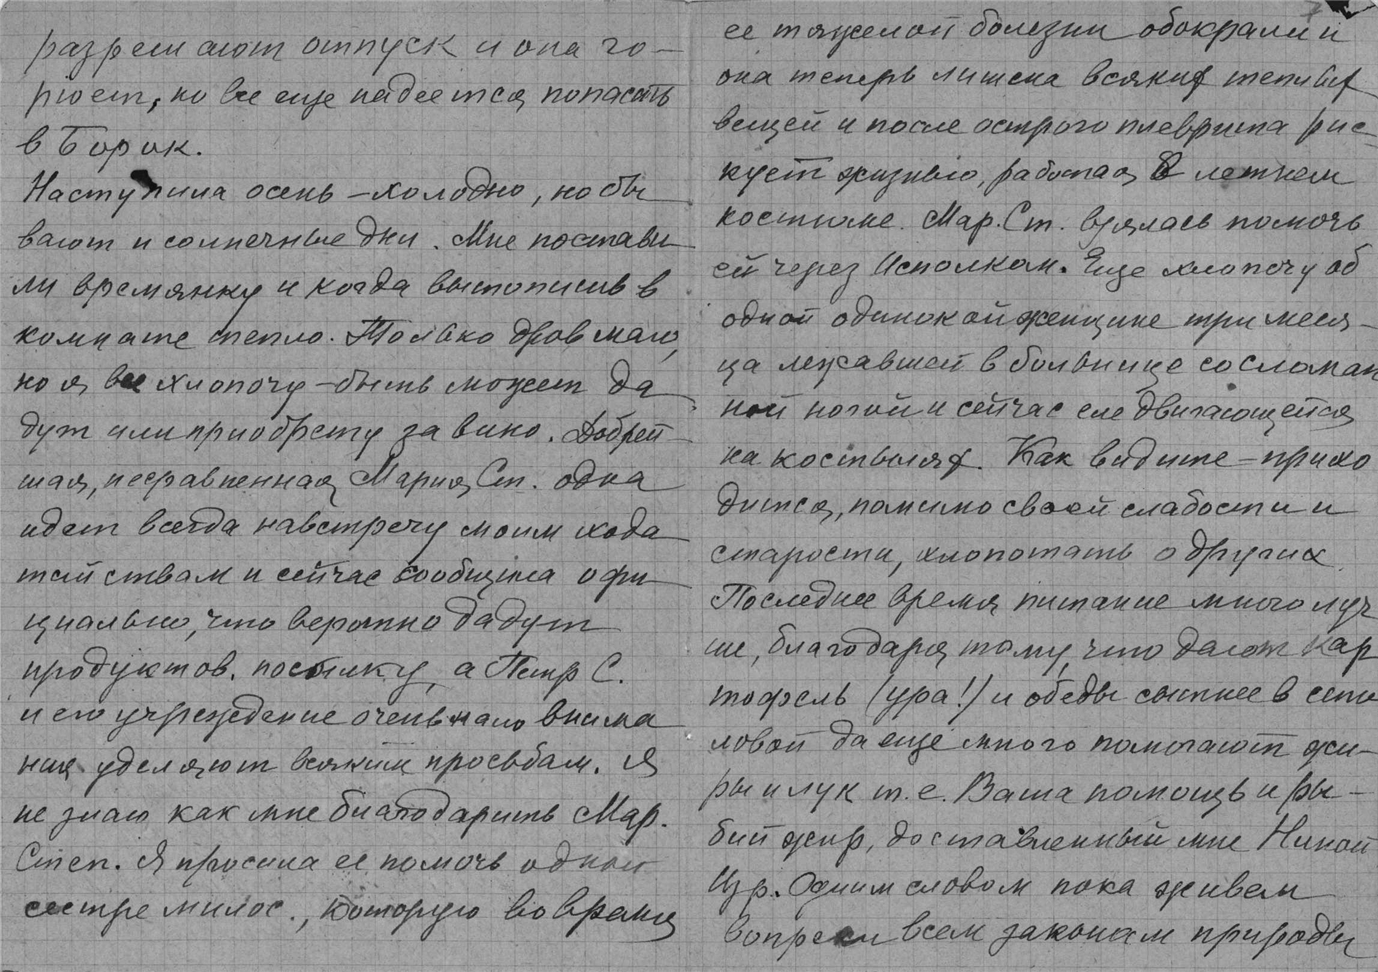 разрешают отпуск и она го-
рюет, но все еще надеется попасть
в Борок.
Наступила осень – холодно, но бы
вают и солнечные дни. Мне постави
ли времянку и когда вытопишь в
комнате тепло. Только дров мало,
но я все хлопочу – быть может да
дут или приобрету за вино. Добрей-
шая, несравненная Мария Ст. одна
идет всегда навстречу моим хода
тайствам и сейчас сообщила офи
циально, что вероятно дадут
продуктов. посылку, а Петр С.
и его учреждение очень мало внима
ния уделяют всяким просьбам. Я
не знаю как мне благодарить Мар.
Степ. Я просила ее помочь одной
сестре милос., которую во время
ее тяжелой болезни обокрали и
она теперь лишена всяких теплых
вещей и после острого плеврита рис-
кует жизнью, работая в летнем
костюме. Мар. Ст. взялась помочь
ей через Исполком. Еще хлопочу об
одной одинокой женщине три меся-
ца лежавшей в больнице со сломан
ной ногой и сейчас еле двигающейся
на костылях. Как видите – прихо
дится, помимо своей слабости и
старости, хлопотать о других.
Последнее время питание много луч
ше, благодаря тому, что дают кар
тофель (ура!) и обеды сытнее в сто
ловой да еще много помогают жи-
ры и лук т. е. Ваша помощь и ры-
бий жир, доставленный мне Ниной
Изр. Одним словом пока живем
вопреки всем законам природы